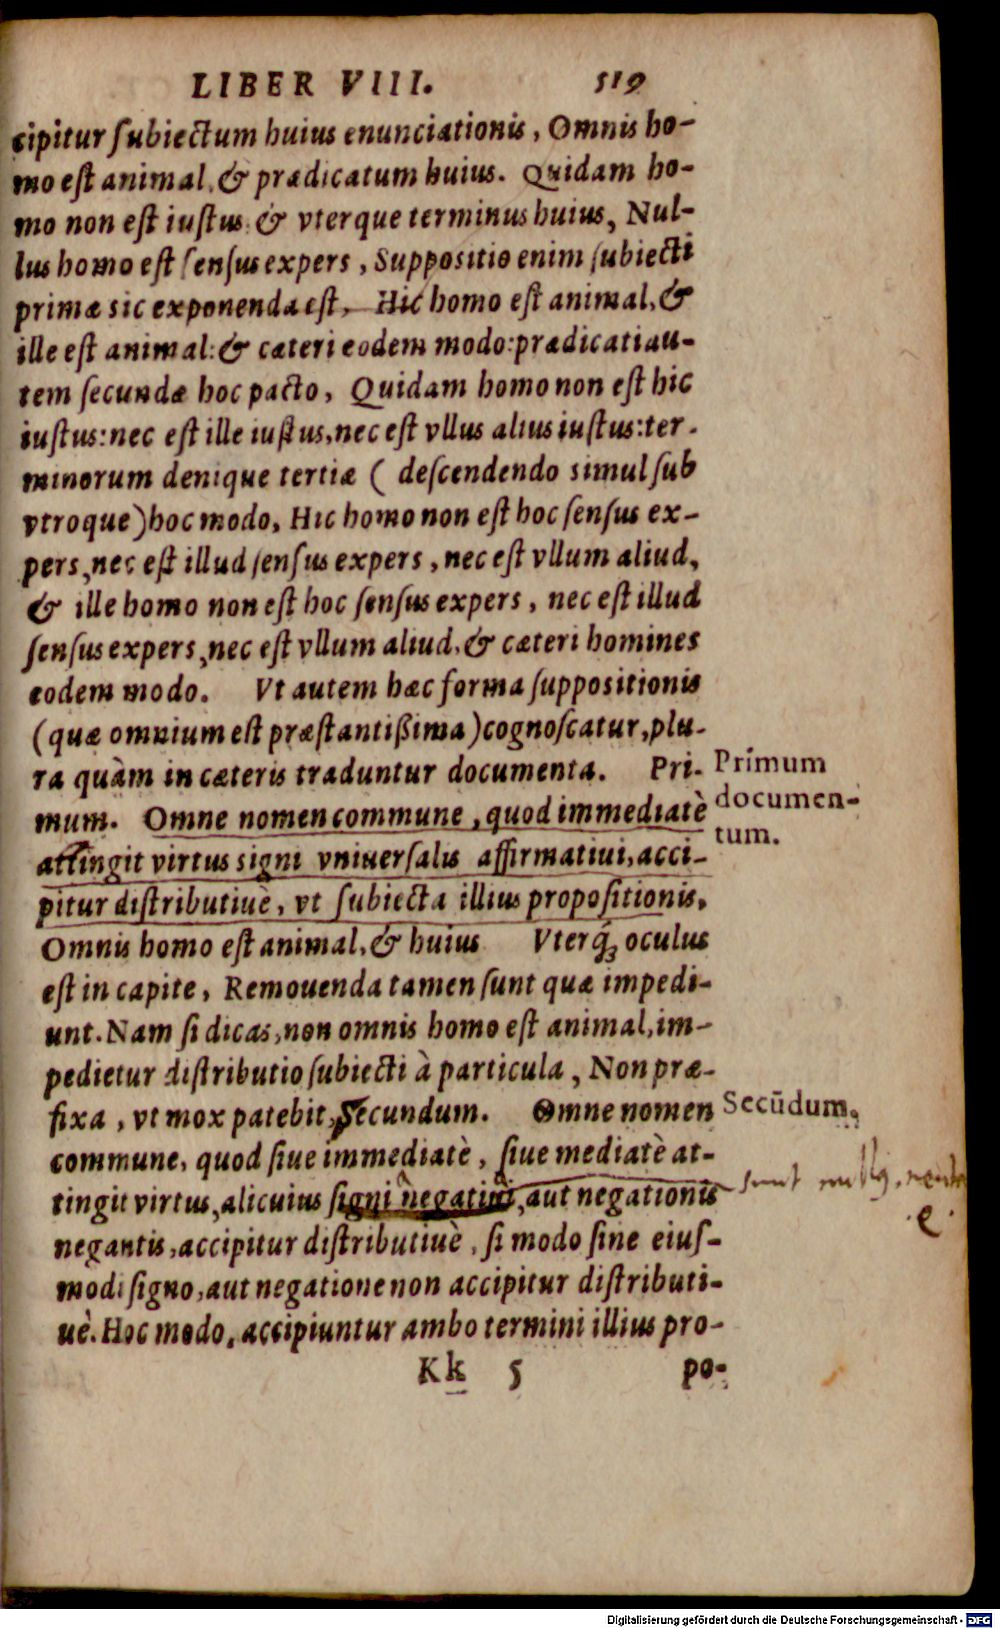 LIBER VIII. 519
cipitur ſubiectum huius enunciationis, Omnis ho-
mo eſt animal, & prædicatum huius. Quidam ho-
mo non eſt iuſtus: & vterque terminus huius, Nul-
lus homo eſt ſenſus expers, Suppositio enim ſubiecti
primæ sic exponenda eſt, Hic homo eſt animal, &
ille eſt animal: & cæteri eodem modo: prædicati au-
tem ſecundæ hoc pacto, Quidam homo non eſt hic
iuſtus: nec eſt ille iuſtus, nec eſt vllus alius iuſtus: ter-
minorum denique tertiæ ( deſcendendo simul ſub
vtroque) hoc modo, Hic homo non eſt hoc ſenſus ex-
pers, nec eſt illud ſenſus expers, nec eſt vllum aliud,
& ille homo non eſt hoc ſenſus expers, nec eſt illud
ſenſus expers, nec eſt vllum aliud, & cæteri homines
eodem modo. Vt autem hæc forma ſuppositionis
(quæ omnium eſt præſtantißima) cognoſcatur, plu-
ra quàm in cæteris traduntur documenta. Pri-
Primum
mum. Omne nomen commune, quod immediatè
documen-
tum.
attingit virtus signi vniuerſalis affirmatiui, acci-
pitur diſtributiuè, vt ſubiecta illius propoſitionis,
Omnis homo eſt animal, & huius Vterq́ꝫ oculus
eſt in capite, Remouenda tamen ſunt quæ impedi-
unt. Nam ſi dicas, non omnis homo eſt animal, im-
pedietur diſtributio ſubiecti à particula, Non præ-
fixa, vt mox patebit, Secundum. Omne nomen
Secūdum.
commune, quod ſiue immediatè, ſiue mediatè at-
tingit virtus, alicuius ſigni negatiui, aut negationis
sunt
negantis, accipitur diſtributiuè, ſi modo ſine eiuſ-
modi ſigno, aut negatione non accipitur diſtributi-
uè. Hoc modo, accipiuntur ambo termini illius pro-
Kk 5 po-
Digitalisierung gefördert durch die Deutsche Forschungsgemeinschaft - DFG